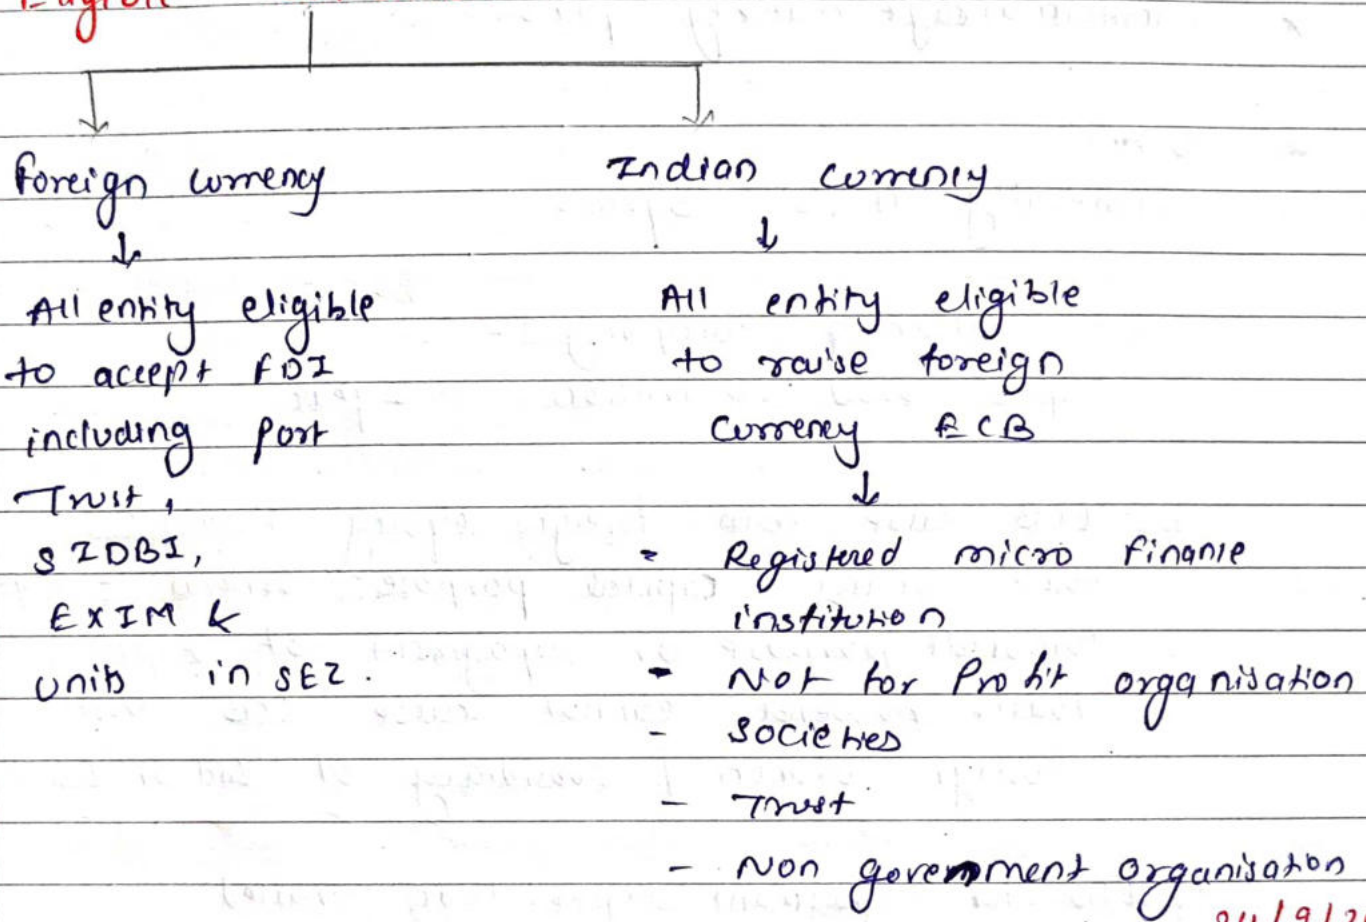 Eligible
Foreign currency
All entity eligible
to accept FDI
including Port
Trust,
SIDBI,
EXIM &
units in SEZ.
Indian currency
All entity eligible
to raise foreign
Currency ECB
- Registered micro finance
institution
- Not for Profit organisation
- societies
- Trust
- Non government organisation